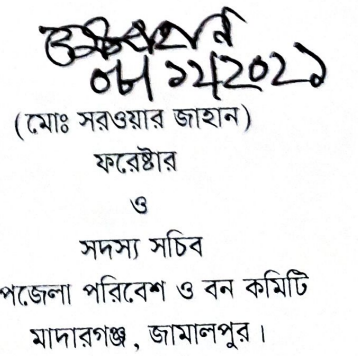 ০৮/১২/২০২১
(মোঃ সরওয়ার জাহান)
ফরেষ্টার
ও
সদস্য সচিব
পজেলা পরিবেশ ও বন কমিটি
মাদারগঞ্জ, জামালপুর।